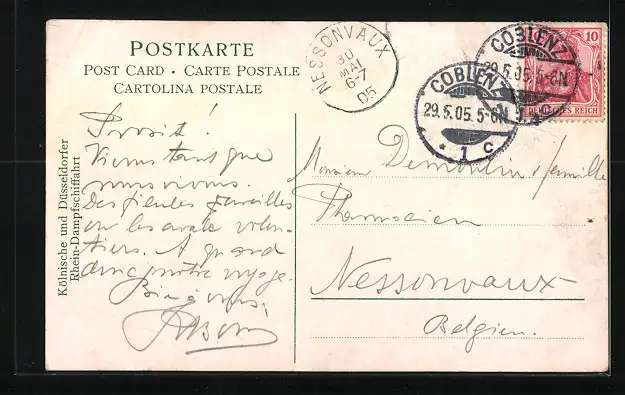 POSTKARTE
POST CARD · CARTE POSTALE
CARTOLINA POSTALE
Kölnische und Düsseldorfer
Rhein-Dampfschiffahrt
NESSONVAUX
30
MAI
6-7
05
COBLENZ
29.5.05.5-6N
* 1 c
COBLENZ
29.5.05.5-6N
10
DEUTSCHES REICH
Prosit !
Vivons tant que
nous vivons.
Des pareilles
on les avale volon-
tiers. A quand
donc notre voyage.
Bien à vous,
Monsieur Demoulin & famille
Pharmacien
Nessonvaux
Belgien.